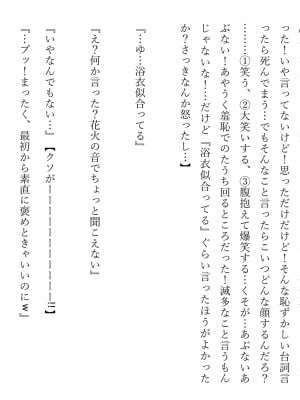 った！いや言ってないけど！思っただけだけど！そんな恥ずかしい台詞言
ったら死んでまう…でもそんなこと言ったらこいつどんな顔するんだろ？
………①笑う、②大笑いする、③腹抱えて爆笑する…くそが…あぶないあ
ぶない！あやうく羞恥でのたうち回るところだった！滅多なこと言うもん
じゃないな！…だけど『浴衣似合ってる』ぐらい言ったほうがよかった
か？さっきなんか怒ったし…】
『…ゆ…浴衣似合ってる』
『え？何か言った？花火の音でちょっと聞こえない』
『いやなんでもない…』【クソがーーーーーーーーーー!!】
『…プッ！まったく、最初から素直に褒めときゃいいのにw』